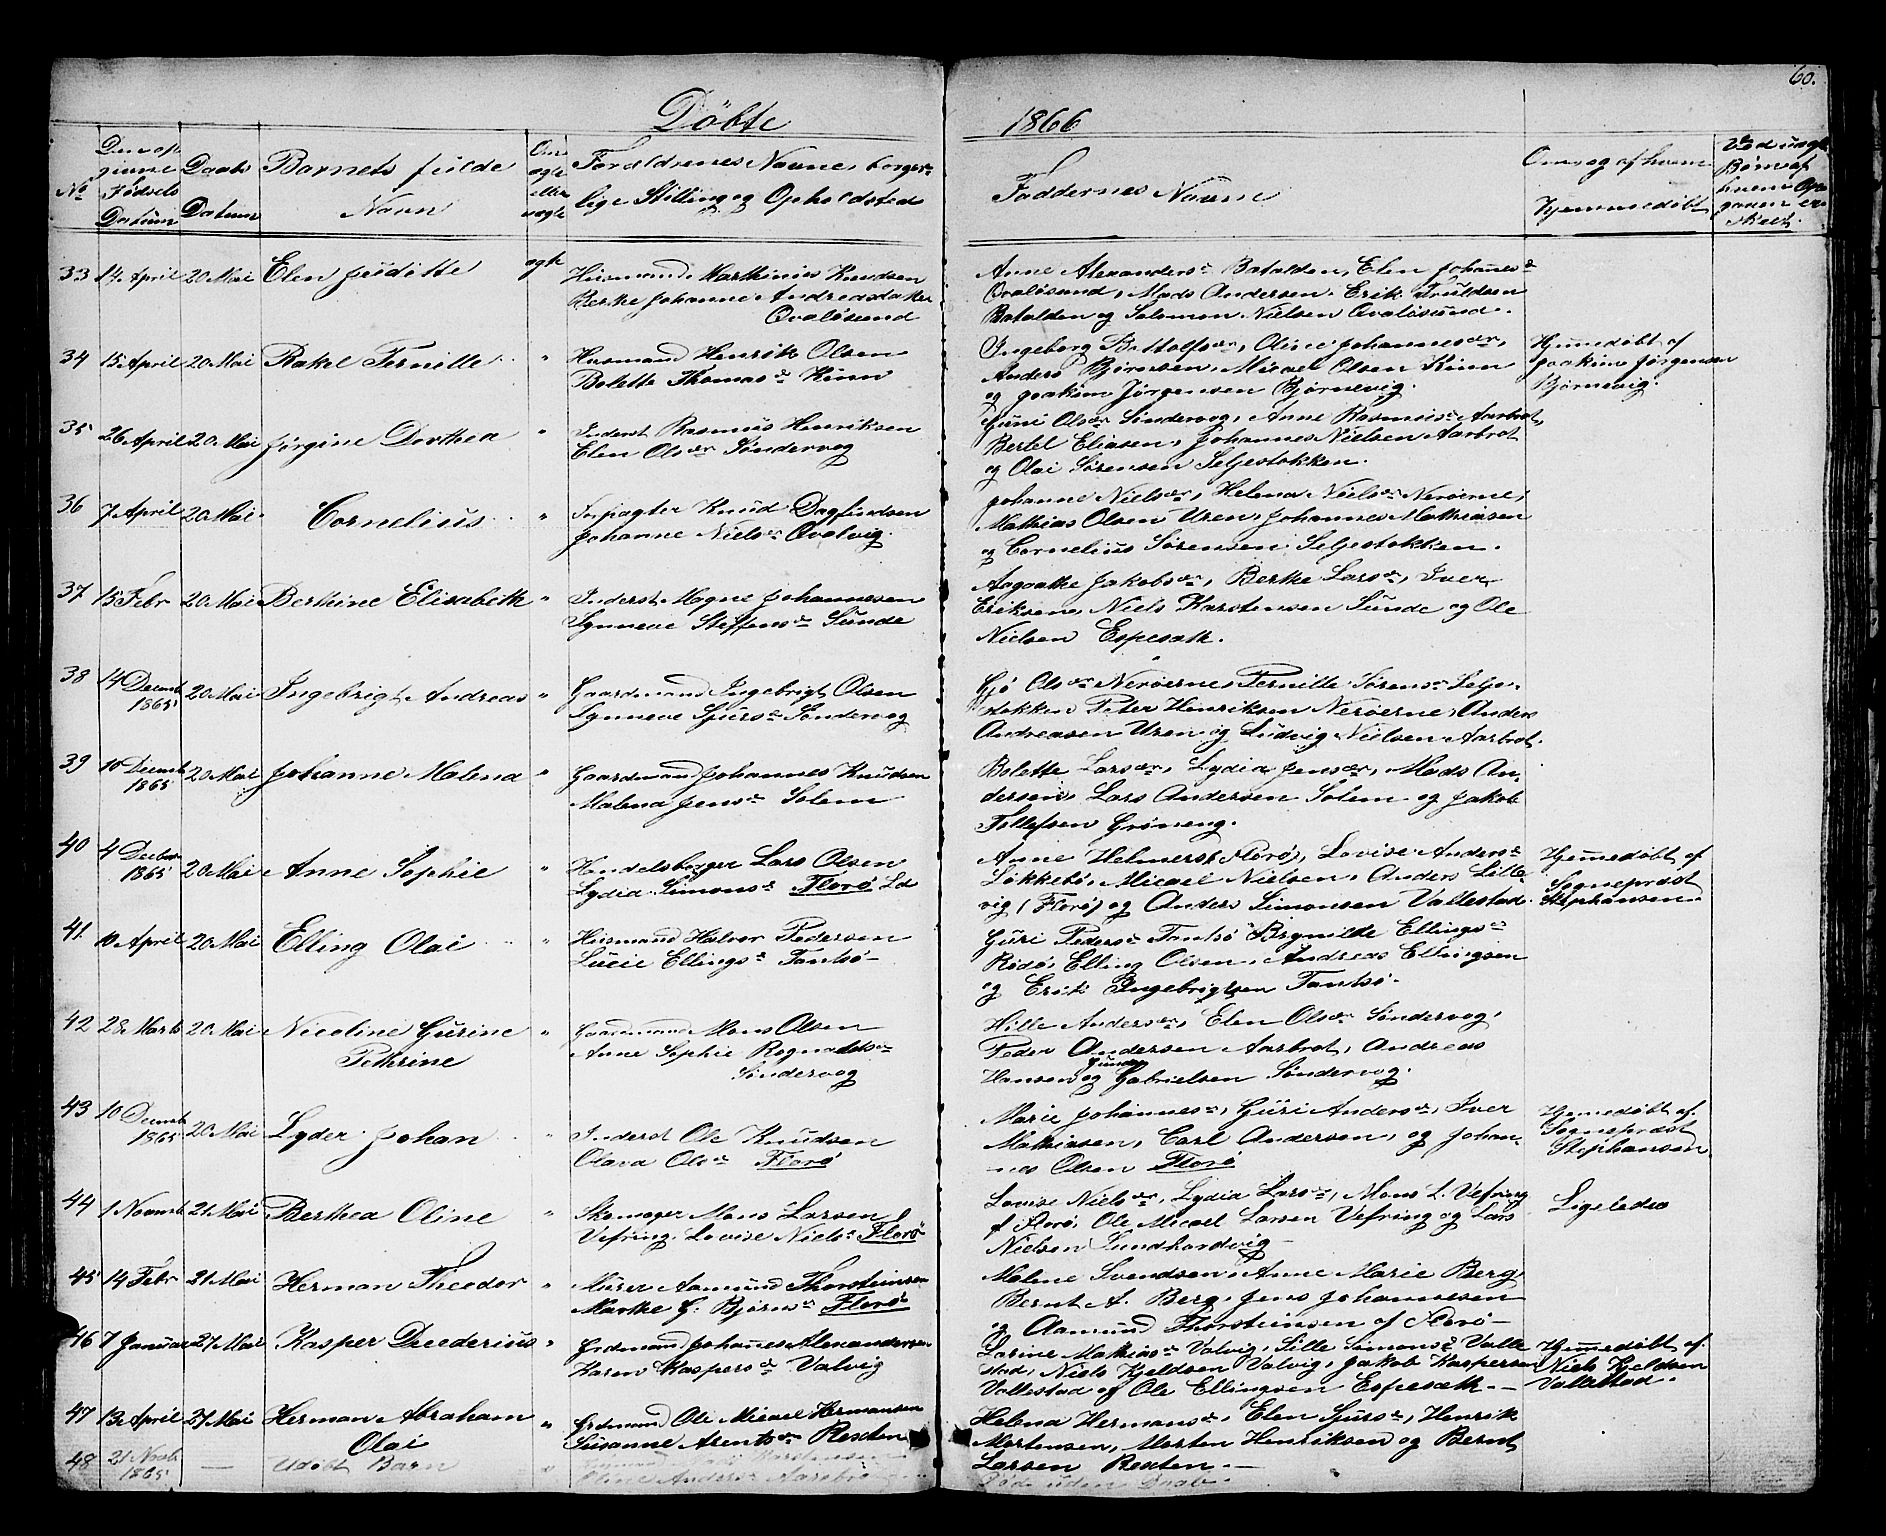 60.
Döbte
1866
No
Den op
givne
Födsels
Datum
Daabs
Datum
Barnets fulde
Navn
Om
ægte
eller
uægte
Forældrenes Navne, borger-
lige Stilling og Opholdsted
Faddernes Navne
Om og af hvem
Hjemmedöbt
33 14 April 20 Mai Elen Juditte ægte
Huusmand Marthinus Knudsen
Berthe Johanne Andreasdatter
Qvalösund
Anne Alexanders Bataldens, Elen Johannes
Qvalösund, Mads Andersen, Erik Truldsen
Batalden og Solomon Nielsen Qvalösund.
34 15 April 20 Mai Rakel Pernille "
Husmand Henrik Olsen
Bolette Thomas Kinn
Ingeborg Botolfs, Oline Johannes,
Anders Björnsen, Micael Olsen Kinn
og Joakim Jörgensen Björnevig.
Hjemedöbt af
Joakim Jörgensen
Björnevig.
35 26 April 20 Mai Jörgine Dorthea "
Inderst Rasmus Henriksen
Elen Ols Söndervog
Guri Ols Söndervog, Anne Rasmus Aarbrot,
Bertel Eliasen, Johannes Nielsen Aarbrot
og Olai Sörensen Seljestokken.
36 7 April 20 Mai Cornelius "
Forpagter Knud Dagfindsen
Johanne Niels Qvalvig.
Johanne Niels, Helena Niels Neröerne,
Mathias Olsen Uren, Johannes Mathiasen
og Cornelius Sörensen Seljestokken.
37 15 Febr 20 Mai Berthine Elisabeth "
Inderst Magne Johannesen
Synneve Steffens Sunde
Aagaathe Jakobs, Berthe Lars, Iver
Eriksen, Niels Karstensen Sunde og Ole
Nielsen Espesæth.
38 14 Decemb 1865 20 Mai Ingebrigt Andreas "
Gaardmand Ingebrigt Olsen
Synneve Sjurs Söndervog
Gjö Ols Neröerne, Pernille Sörens Selje-
stokken Peter Henriksen Neröerne, Anders
Andreasen Uren og Ludvig Nielsen Aarbrot.
39 10 Decemb 1865 20 Mai Johanne Malena "
Gaardmand Johannes Knudsen
Malena Jens Solem
Bolette Lars, Lydia Jens, Mads An-
dersen, Lars Andersen Solem og Jakob
Tollefsen Gröneng.
40 4 Decbr 1865 20 Mai Anne Sophie "
Handelsborger Lars Olsen
Lydia Simons Florö
Anne Helmers (Florö), Lovise Anders
Lökkebö, Micael Nielsen, Anders Lille-
vig (Florö) og Anders Simonsen Vallestad.
Hjemmedöbt af
Sognepræst
Stephansen.
41 10 April 20 Mai Elling Olai "
Huusmand Halvor Pedersen
Lucie Ellings Tansö
Guri Peders Tansö Brynilde Ellings
Rödö, Elling Olsen, Andreas Ellingsen
og Erik Ingebrigtsen Tansö.
42 28 Marts 20 Mai Nicoline Gurine
Pethrine "
Gaardmand Mons Olsen
Anne Sophie Rognalds
Söndervog
Hille Anders, Elen Ols Söndervog,
Peder Andersen Aarbrot, Andreas
Hansen og Gabrielsen Söndervog.
43 10 Decemb 1865 20 Mai Lyder Johan "
Inderst Ole Knudsen
Olava Ols Florö
Marie Johannes, Guri Anders, Iver
Mathiasen, Carl Andersen, og Johan-
nes Olsen Florö
Hjemedöbt af
Sognepræst
Stephansen
44 1 Novemb 21 Mai Berthea Oline "
Skomager Mons Larsen
Vefring, Lovise Niels Florö
Lovise Niels, Lydia Lars, Mons L. Vefring
af Florö, Ole Micael Larsen Vefring og Lars
Nielsen Sundhordvig
Ligeledes
45 14 Febr 21 Mai Herman Theodor "
Murer Aamund Thorsteinsen
Marthe J. Björns Florö
Malene Svendsen, Anne Marie Berg,
Bernt A. Berg, Jens Johannesen
og Aamund Thorsteinsen af Florö
46 7 Januar 27 Mai Kasper Deederius "
Grdmand Johanes Alexandersen
Karen Kaspers Valvig
Larine Mathias Valvig, Sille Simons Valle
stad, Niels Kjeldsen Valvig, Jakob Kaspersen
Vallestad og Ole Ellingsen Espesæth.
Hjemmedöbt af
Niels Kjeldsen
Vallestad.
47 13 April 27 Mai Herman Abraham
Olai "
Grdmand Ole Micael Hermansen
Susanne Arents Resten
Helena Hermans, Elen Sjurs, Henrik
Mortensen, Morten Henriksen og Bernt
Larsen Resten.
48 21 Novb 1865 — Udöbt Barn "
Oline Anders
Död uden Daab